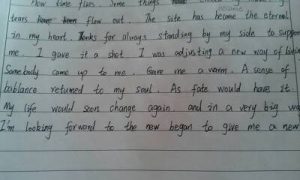 How time flies. Some things
tears have been flow out. The site has become the eternal
in my heart. Thanks for always standing by my side to suppo
me. I gave it a shot. I was adjusting a new way of being
Somebody came up to me. Gave me a warm. A sense of
bablance returned to my soul. As fate would have it.
My life would soon change again and in a very big way
I'm looking forward to the new began to give me a new